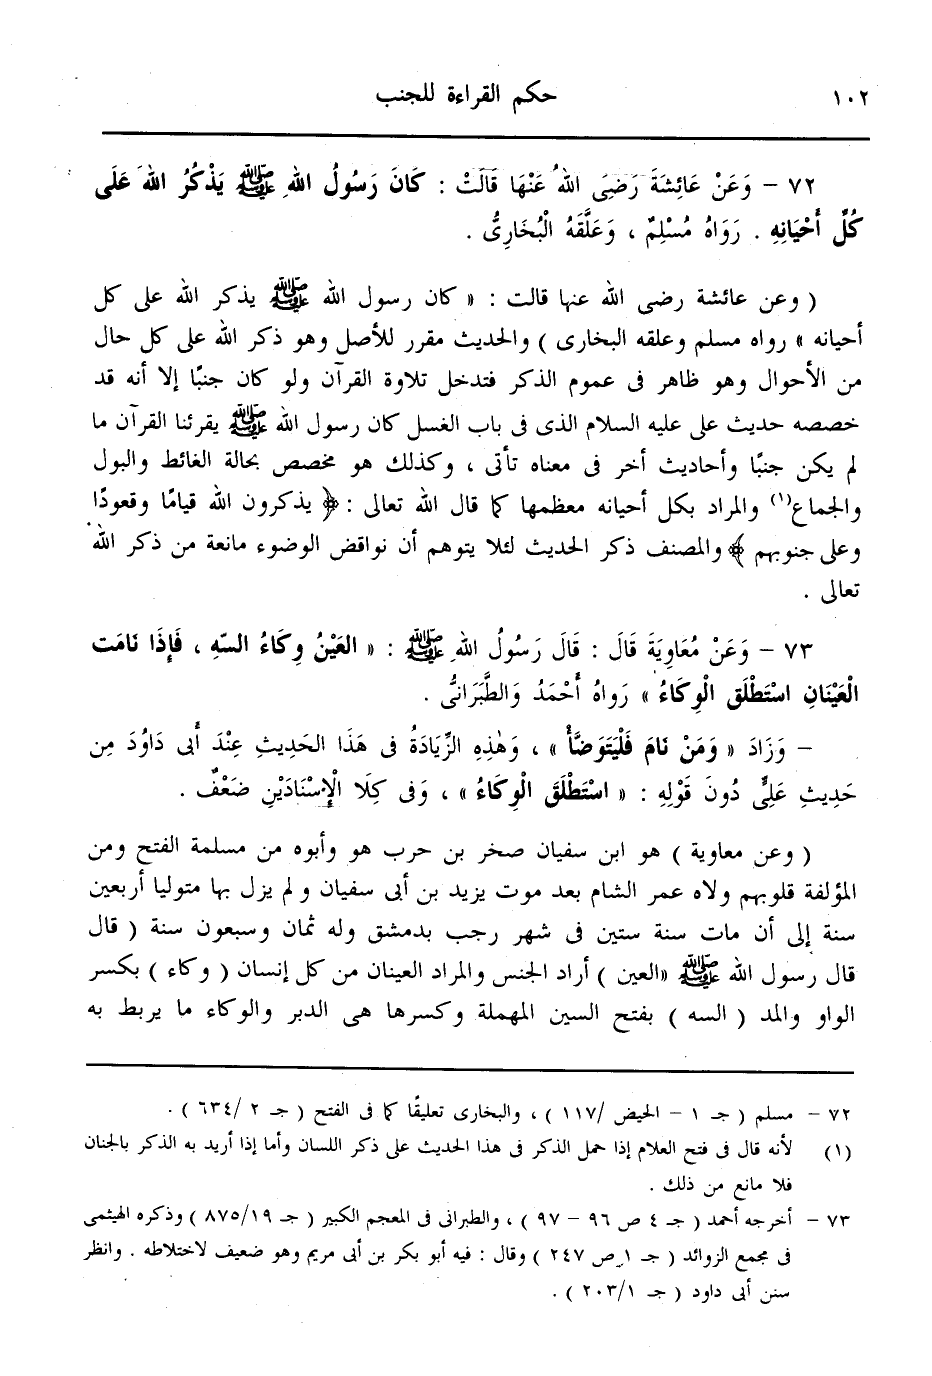 ١٠٢ حكم القراءة للجنب
٧٢ - وَعَنْ عَائِشَةَ رَضِىَ اللهُ عَنْهَا قَالَتْ : كَانَ رَسُولُ اللهِ ﷺ يَذْكُرُ اللهَ عَلَى
كُلِّ أَحْيَانِهِ . رَوَاهُ مُسْلِمٌ ، وَعَلَّقَهُ الْبُخَارِىُّ .
( وعن عائشة رضى الله عنها قالت : « كان رسول الله ﷺ يذكر الله على كل
أحيانه » رواه مسلم وعلقه البخارى ) والحديث مقرر للأصل وهو ذكر الله على كل حال
من الأحوال وهو ظاهر فى عموم الذكر فتدخل تلاوة القرآن ولو كان جنبًا إلا أنه قد
خصصه حديث على عليه السلام الذى فى باب الغسل كان رسول الله ﷺ يقرئنا القرآن ما
لم يكن جنبًا وأحاديث أخر فى معناه تأتى ، وكذلك هو مخصص بحالة الغائط والبول
والجماع(١) والمراد بكل أحيانه معظمها كما قال الله تعالى : ﴿ يذكرون الله قيامًا وقعودًا
وعلى جنوبهم ﴾ والمصنف ذكر الحديث لئلا يتوهم أن نواقض الوضوء مانعة من ذكر الله
تعالى .
٧٣ - وَعَنْ مُعَاوِيَةَ قَالَ : قَالَ رَسُولُ اللهِ ﷺ : « العَيْنُ وِكَاءُ السّهِ ، فَإِذَا نَامَت
الْعَيْنَانِ اسْتَطْلَق الْوِكَاءُ » رَوَاهُ أَحْمَدُ وَالطَّبَرَانىُّ .
- وَزَادَ « وَمَنْ نَام فَلْيَتَوَضَّأْ » ، وَهٰذِهِ الزِّيَادَةُ فى هَذَا الحَدِيثِ عِنْدَ أَبى دَاوُدَ مِن
حَدِيثِ عَلِىٍّ دُونَ قَوْلِهِ : « اسْتَطْلَقَ الْوِكَاءُ » ، وَفى كِلَا الْإِسْنَادَيْنِ ضَعْفٌ .
( وعن معاوية ) هو ابن سفيان صخر بن حرب هو وأبوه من مسلمة الفتح ومن
المؤلفة قلوبهم ولاه عمر الشام بعد موت يزيد بن أبى سفيان ولم يزل بها متوليا أربعين
سنة إلى أن مات سنة ستين فى شهر رجب بدمشق وله ثمان وسبعون سنة ( قال
قال رسول الله ﷺ «العين ) أراد الجنس والمراد العينان من كل إنسان ( وكاء ) بكسر
الواو والمد ( السه ) بفتح السين المهملة وكسرها هى الدبر والوكاء ما يربط به
٧٢ - مسلم ( جـ ١ - الحيض /١١٧ ) ، والبخارى تعليقًا كما فى الفتح ( جـ ٢ /٦٣٤ ) .
(١) لأنه قال فى فتح العلام إذا حمل الذكر فى هذا الحديث على ذكر اللسان وأما إذا أريد به الذكر بالجنان
فلا مانع من ذلك .
٧٣ - أخرجه أحمد ( جـ ٤ ص ٩٦ - ٩٧ ) ، والطبرانى فى المعجم الكبير ( جـ ٨٧٥/١٩ ) وذكره الهيثمى
فى مجمع الزوائد ( جـ ١ ص ٢٤٧ ) وقال : فيه أبو بكر بن أبى مريم وهو ضعيف لاختلاطه . وانظر
سنن أبى داود ( جـ ٢٠٣/١ ) .